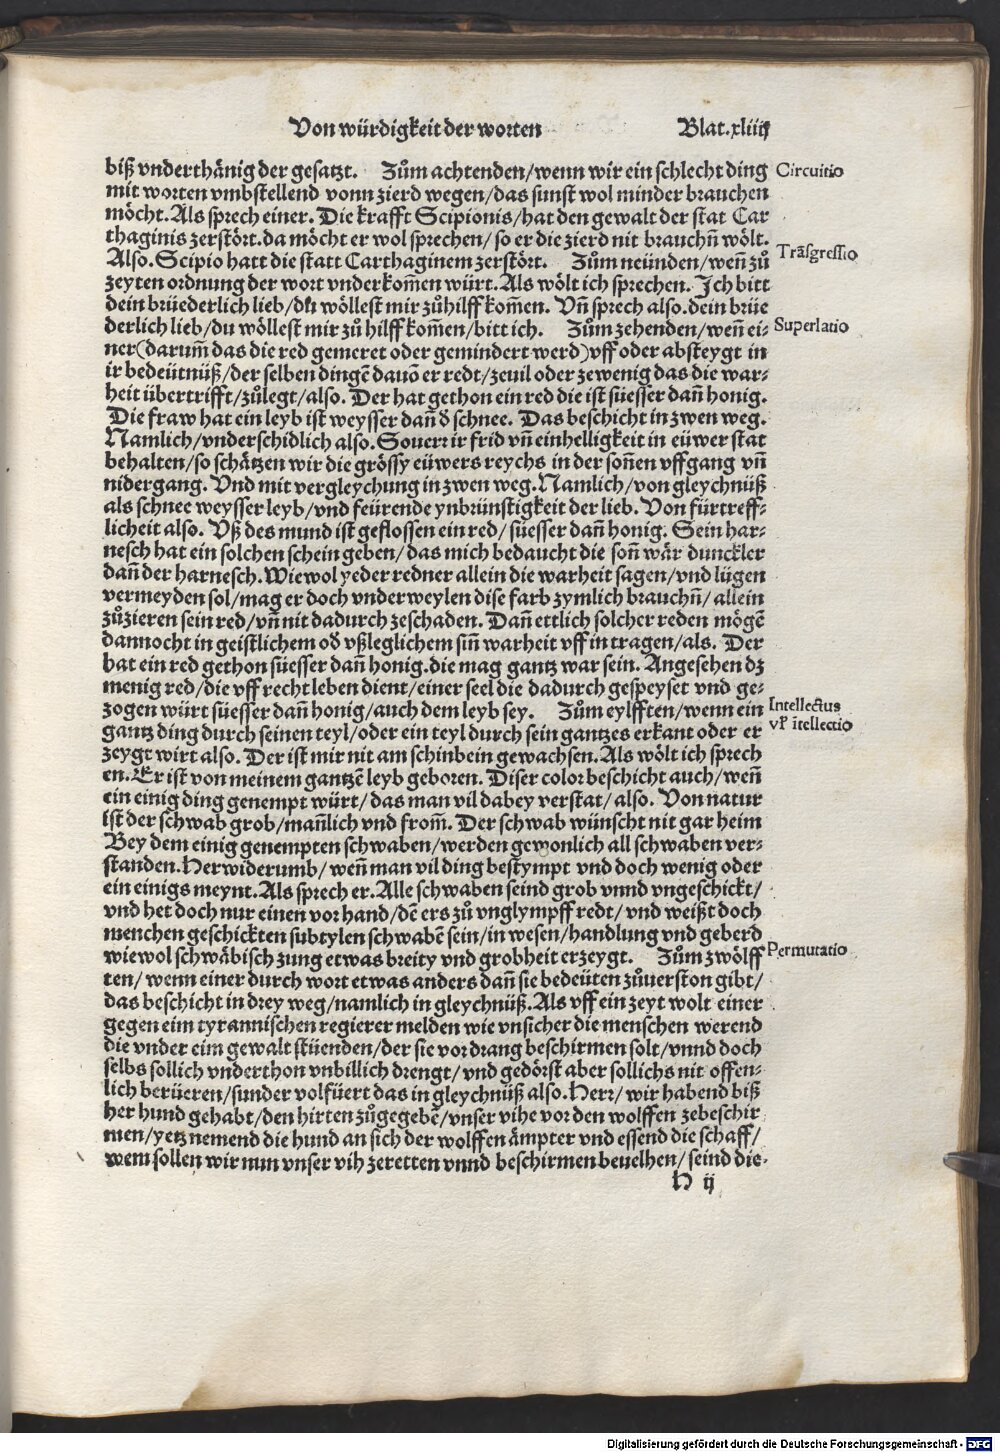 Von würdigkeit der worten Blat.xliiij
biß vnderthänig der gesatzt. Zům achtenden/wenn wir ein schlecht ding Circuitio
mit worten vmbstellend vonn zierd wegen/das sunst wol minder brauchen
möcht. Als sprech einer. Die krafft Scipionis/hat den gewalt der stat Car
thaginis zerstört.da möcht er wol sprechen/so er die zierd nit brauchñ wölt.
Also. Scipio hatt die statt Carthaginem zerstört. Zům neünden/weñ zů Trãsgressio
zeyten ordnung der wort vnderkom̃en würt. Als wölt ich sprechen. Ich bitt
dein brüederlich lieb/du wöllest mir zů hilff kom̃en. Vñ sprech also.dein brüe
derlich lieb/du wöllest mir zů hilff kom̃en/bitt ich. Zům zehenden/weñ ei⸗ Superlatio
ner(darum̃ das die red gemeret oder gemindert werd)vff oder absteygt in
ir bedeütnüß/der selben dingẽ dauõ er redt/zeuil oder zewenig das die war⸗
heit übertrifft/zůlegt/also. Der hat gethon ein red die ist süesser dañ honig.
Die fraw hat ein leyb ist weysser dañ d̕ schnee. Das beschicht in zwen weg.
Namlich/vnderschidlich also. Souerr ir frid vñ einhelligkeit in eüwer stat
behalten/so schätzen wir die grössy eüwers reychs in der soñen vffgang vñ
nidergang. Vnd mit vergleychung in zwen weg. Namlich/von gleychnüß
als schnee weysser leyb/vnd feürende ynbrünstigkeit der lieb. Von fürtreff⸗
licheit also. Vß des mund ist geflossen ein red/süesser dañ honig. Sein har⸗
nesch hat ein solchen schein geben/das mich bedaucht die soñ wär dunckler
dañ der harnesch. Wiewol yeder redner allein die warheit sagen/vnd lügen
vermeyden sol/mag er doch vnderweylen dise farb zymlich brauchñ/allein
zůzieren sein red/vñ nit dadurch zeschaden. Dañ ettlich solcher reden mögẽ
dannocht in geistlichem od̕ vßleglichem siñ warheit vff in tragen/als. Der
hat ein red gethon süesser dañ honig.die mag gantz war sein. Angesehen dz
menig red/die vff recht leben dient/einer seel die dadurch gespeyset vnd ge⸗
zogen würt süesser dañ honig/auch dem leyb sey. Zům eylfften/wenn ein Intellectus
gantz ding durch seinen teyl/oder ein teyl durch sein gantzes erkant oder er vl̕ ĩtellectio
zeygt wirt also. Der ist mir nit am schinbein gewachsen. Als wölt ich sprech
en. Er ist von meinem gantzẽ leyb geboren. Diser color beschicht auch/weñ
ein einig ding genempt würt/das man vil dabey verstat/also. Von natur
ist der schwab grob/mañlich vnd from̃. Der schwab wünscht nit gar heim
Bey dem einig genempten schwaben/werden gewonlich all schwaben ver⸗
standen. Herwiderumb/weñ man vil ding bestympt vnd doch wenig oder
ein einigs meynt. Als sprech er. Alle schwaben seind grob vnnd vngeschickt/
vnd het doch nur einen vorhand/dẽ ers zů vnglympff redt/vnd weißt doch
menchen geschickten subtylen schwabẽ sein/in wesen/handlung vnd geberd
wiewol schwäbisch zung etwas breity vnd grobheit erzeygt. Zům zwölff Permutatio
ten/wenn einer durch wort etwas anders dañ sie bedeüten zůuerston gibt/
das beschicht in drey weg/namlich in gleychnüß. Als vff ein zeyt wolt einer
gegen eim tyrannischen regierer melden wie vnsicher die menschen werend
die vnder eim gewalt stüenden/der sie vor drang beschirmen solt/vnnd doch
selbs sollich vnderthon vnbillich drengt/vnd gedörst aber sollichs nit offen⸗
lich berüeren/sunder volfüert das in gleychnüß also. Herr/wir habend biß
her hund gehabt/den hirten zůgegebẽ/vnser vihe vor den wolffen zebeschir
men/yetz nemend die hund an sich der wolffen ämpter vnd essend die schaff/
wem sollen wir nun vnser vih zeretten vnnd beschirmen beuelhen/seind die⸗
H ij
Digitalisierung gefördert durch die Deutsche Forschungsgemeinschaft - DFG